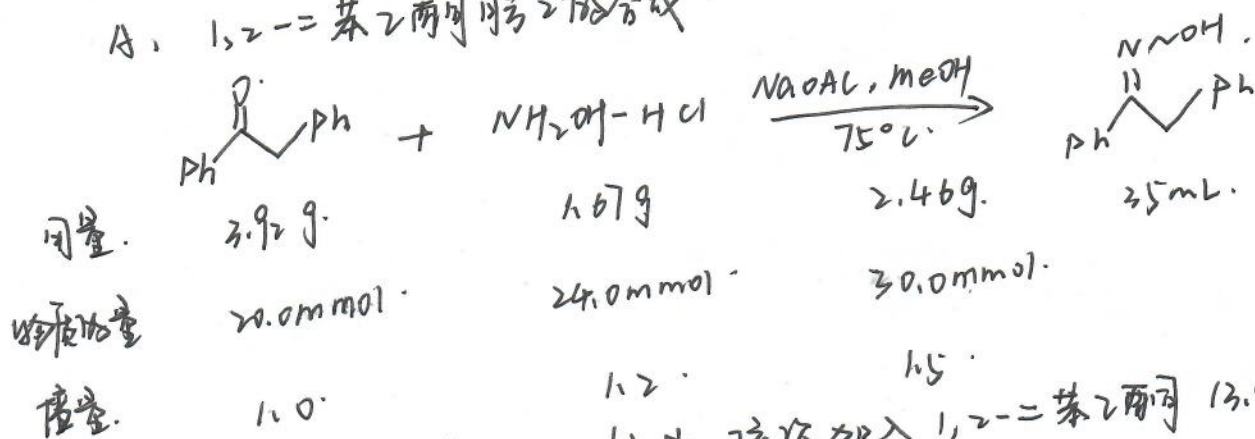 A、 1,2-二苯乙酮肟的合成
O
Ph Ph + NH2OH-HCl NaOAc, MeOH 75°C. N~OH. Ph Ph
用量. 3.92 g. 1.67g 2.46g. 35mL.
物质的量 20.0mmol. 24.0mmol. 30.0mmol.
当量. 1.0. 1.2. 1.5.
加入 1,2-二苯乙酮